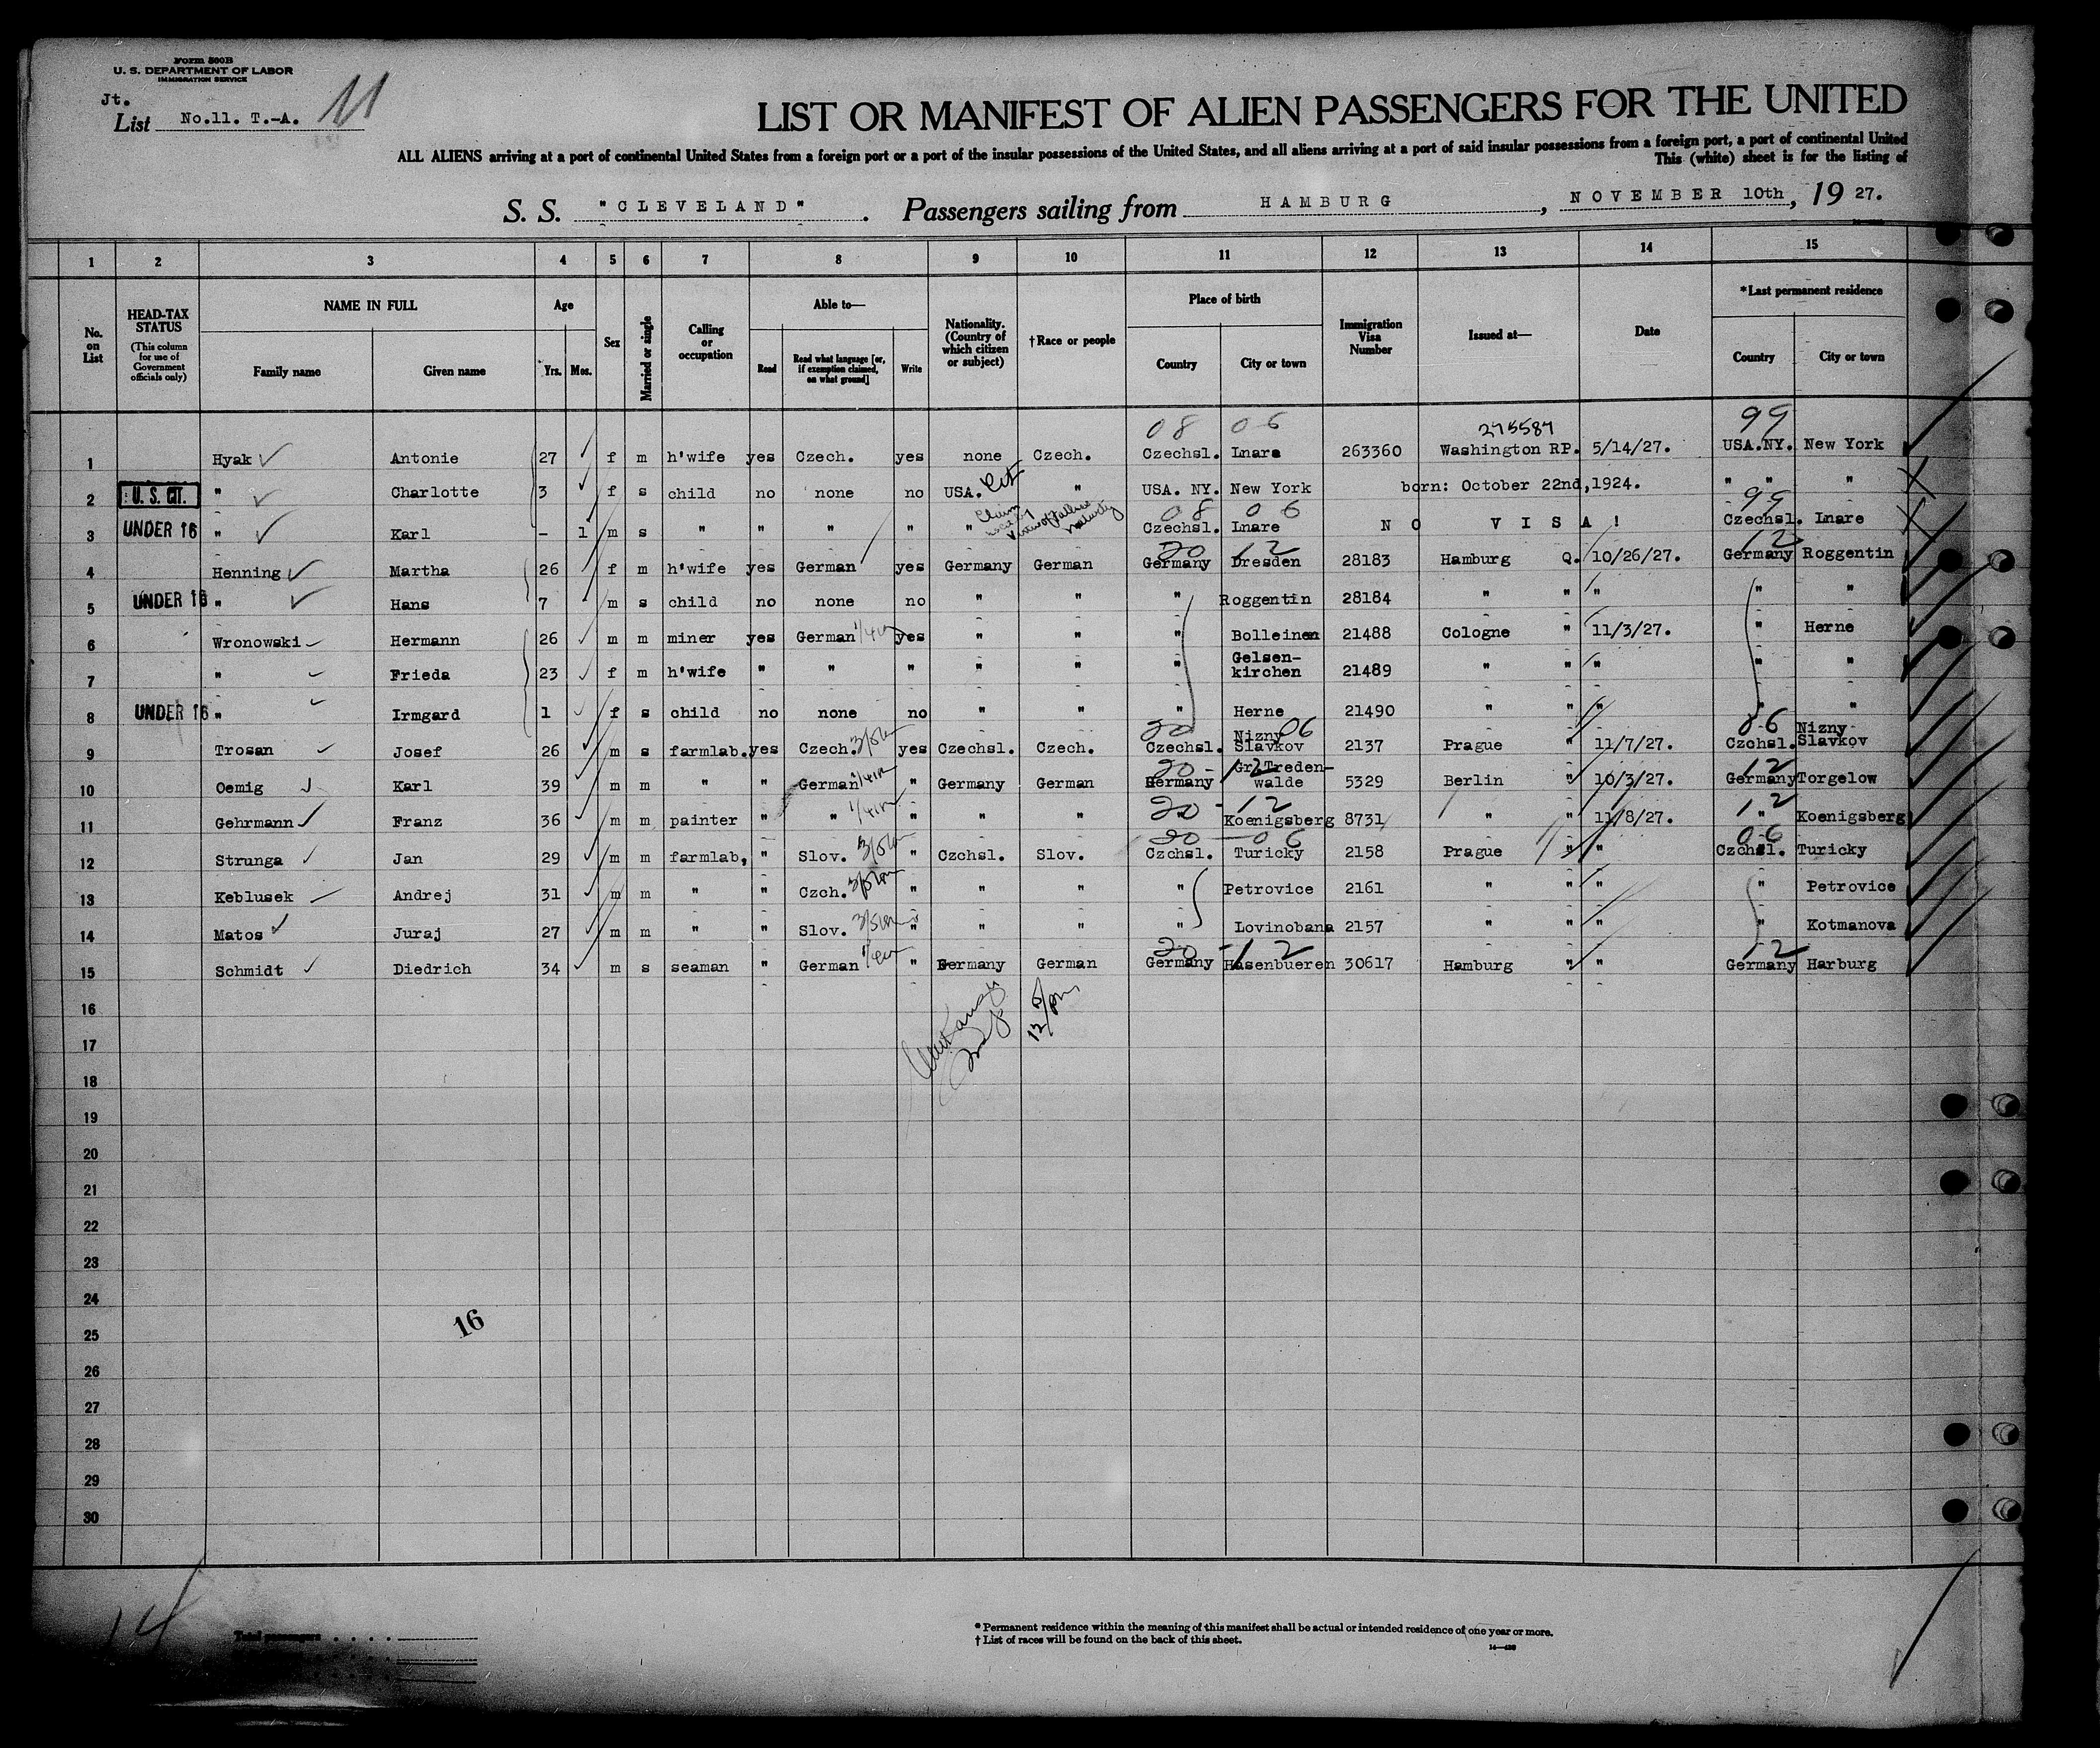 Form 500B
U. S. DEPARTMENT OF LABOR
IMMIGRATION SERVICE
Jt.
List No.11. T.-A. 11
LIST OR MANIFEST OF ALIEN PASSENGERS FOR THE UNITED
ALL ALIENS arriving at a port of continental United States from a foreign port or a port of the insular possessions of the United States, and all aliens arriving at a port of said insular possessions from a foreign port, a port of continental United
This (white) sheet is for the listing of
S. S. "CLEVELAND". Passengers sailing from HAMBURG, NOVEMBER 10th, 19 27.
1 2 3 4 5 6 7 8 9 10 11 12 13 14 15
No. on List
HEAD-TAX STATUS (This column for use of Government officials only)
NAME IN FULL
Family name Given name
Age
Yrs. Mos.
Sex
Married or single
Calling or occupation
Able to—
Read Read what language [or, if exemption claimed, on what ground] Write
Nationality. (Country of which citizen or subject)
†Race or people
Place of birth
Country City or town
Immigration Visa Number
Issued at—
Date
*Last permanent residence
Country City or town
08 06 275587 99
1 Hyak Antonie 27 f m h'wife yes Czech. yes none Czech. Czechsl. Lnare 263360 Washington RP. 5/14/27. USA.NY. New York
2 U. S. CIT. " Charlotte 3 f s child no none no USA. Cit " USA. NY. New York born: October 22nd,1924. " " "
08 06 99
3 UNDER 16 " Karl - 1 m s " " " " " Czechsl. Lnare NO VISA! Czechsl. Lnare
20 12 12
4 Henning Martha 26 f m h'wife yes German yes Germany German Germany Dresden 28183 Hamburg Q. 10/26/27. Germany Roggentin
5 UNDER 16 " Hans 7 m s child no none no " " " Roggentin 28184 " " " " "
6 Wronowski Hermann 26 m m miner yes German yes " " " Bolleinen 21488 Cologne " 11/3/27. " Herne
7 " Frieda 23 f m h'wife " " " " " " Gelsen-kirchen 21489 " " " " "
8 UNDER 16 " Irmgard 1 f s child no none no " " " Herne 21490 " " " " "
20 06 06
9 Trosan Josef 26 m s farmlab. yes Czech. yes Czechsl. Czech. Czechsl. Nizny Slavkov 2137 Prague " 11/7/27. Czchsl. Nizny Slavkov
20 - 12 12
10 Oemig Karl 39 m m " " German " Germany German Germany Gr. Treden-walde 5329 Berlin " 10/3/27. Germany Torgelow
20 - 12 12
11 Gehrmann Franz 36 m m painter " " " " " " Koenigsberg 8731 " " 11/8/27. " Koenigsberg
20 - 06 06
12 Strunga Jan 29 m m farmlab, " Slov. " Czchsl. Slov. Czchsl. Turicky 2158 Prague " " Czchsl. Turicky
13 Keblusek Andrej 31 m m " " Czch. " " " " Petrovice 2161 " " " " Petrovice
14 Matos Juraj 27 m m " " Slov. " " " " Lovinobana 2157 " " " " Kotmanova
20 - 12 12
15 Schmidt Diedrich 34 m s seaman " German " Germany German Germany Hasenbueren 30617 Hamburg " " Germany Harburg
16
17
18
19
20
21
22
23
24
16
25
26
27
28
29
30
14
Total passengers
* Permanent residence within the meaning of this manifest shall be actual or intended residence of one year or more.
† List of races will be found on the back of this sheet.